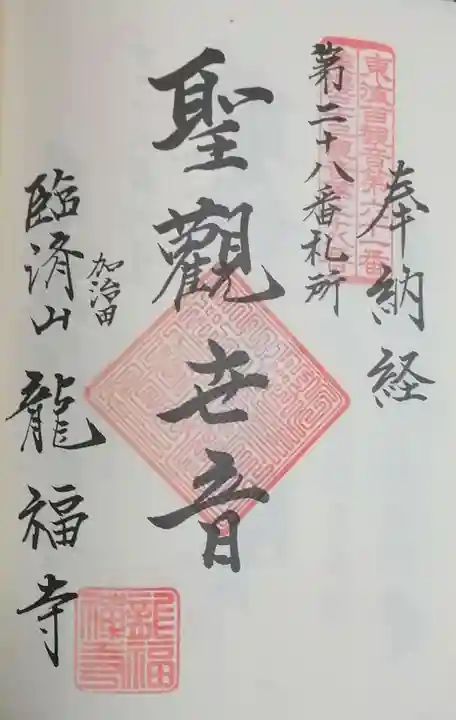 奉納経
東濃百観音第六十一番
第二十八番札所
聖觀世音
加治田
臨済山龍福寺
龍福禅寺